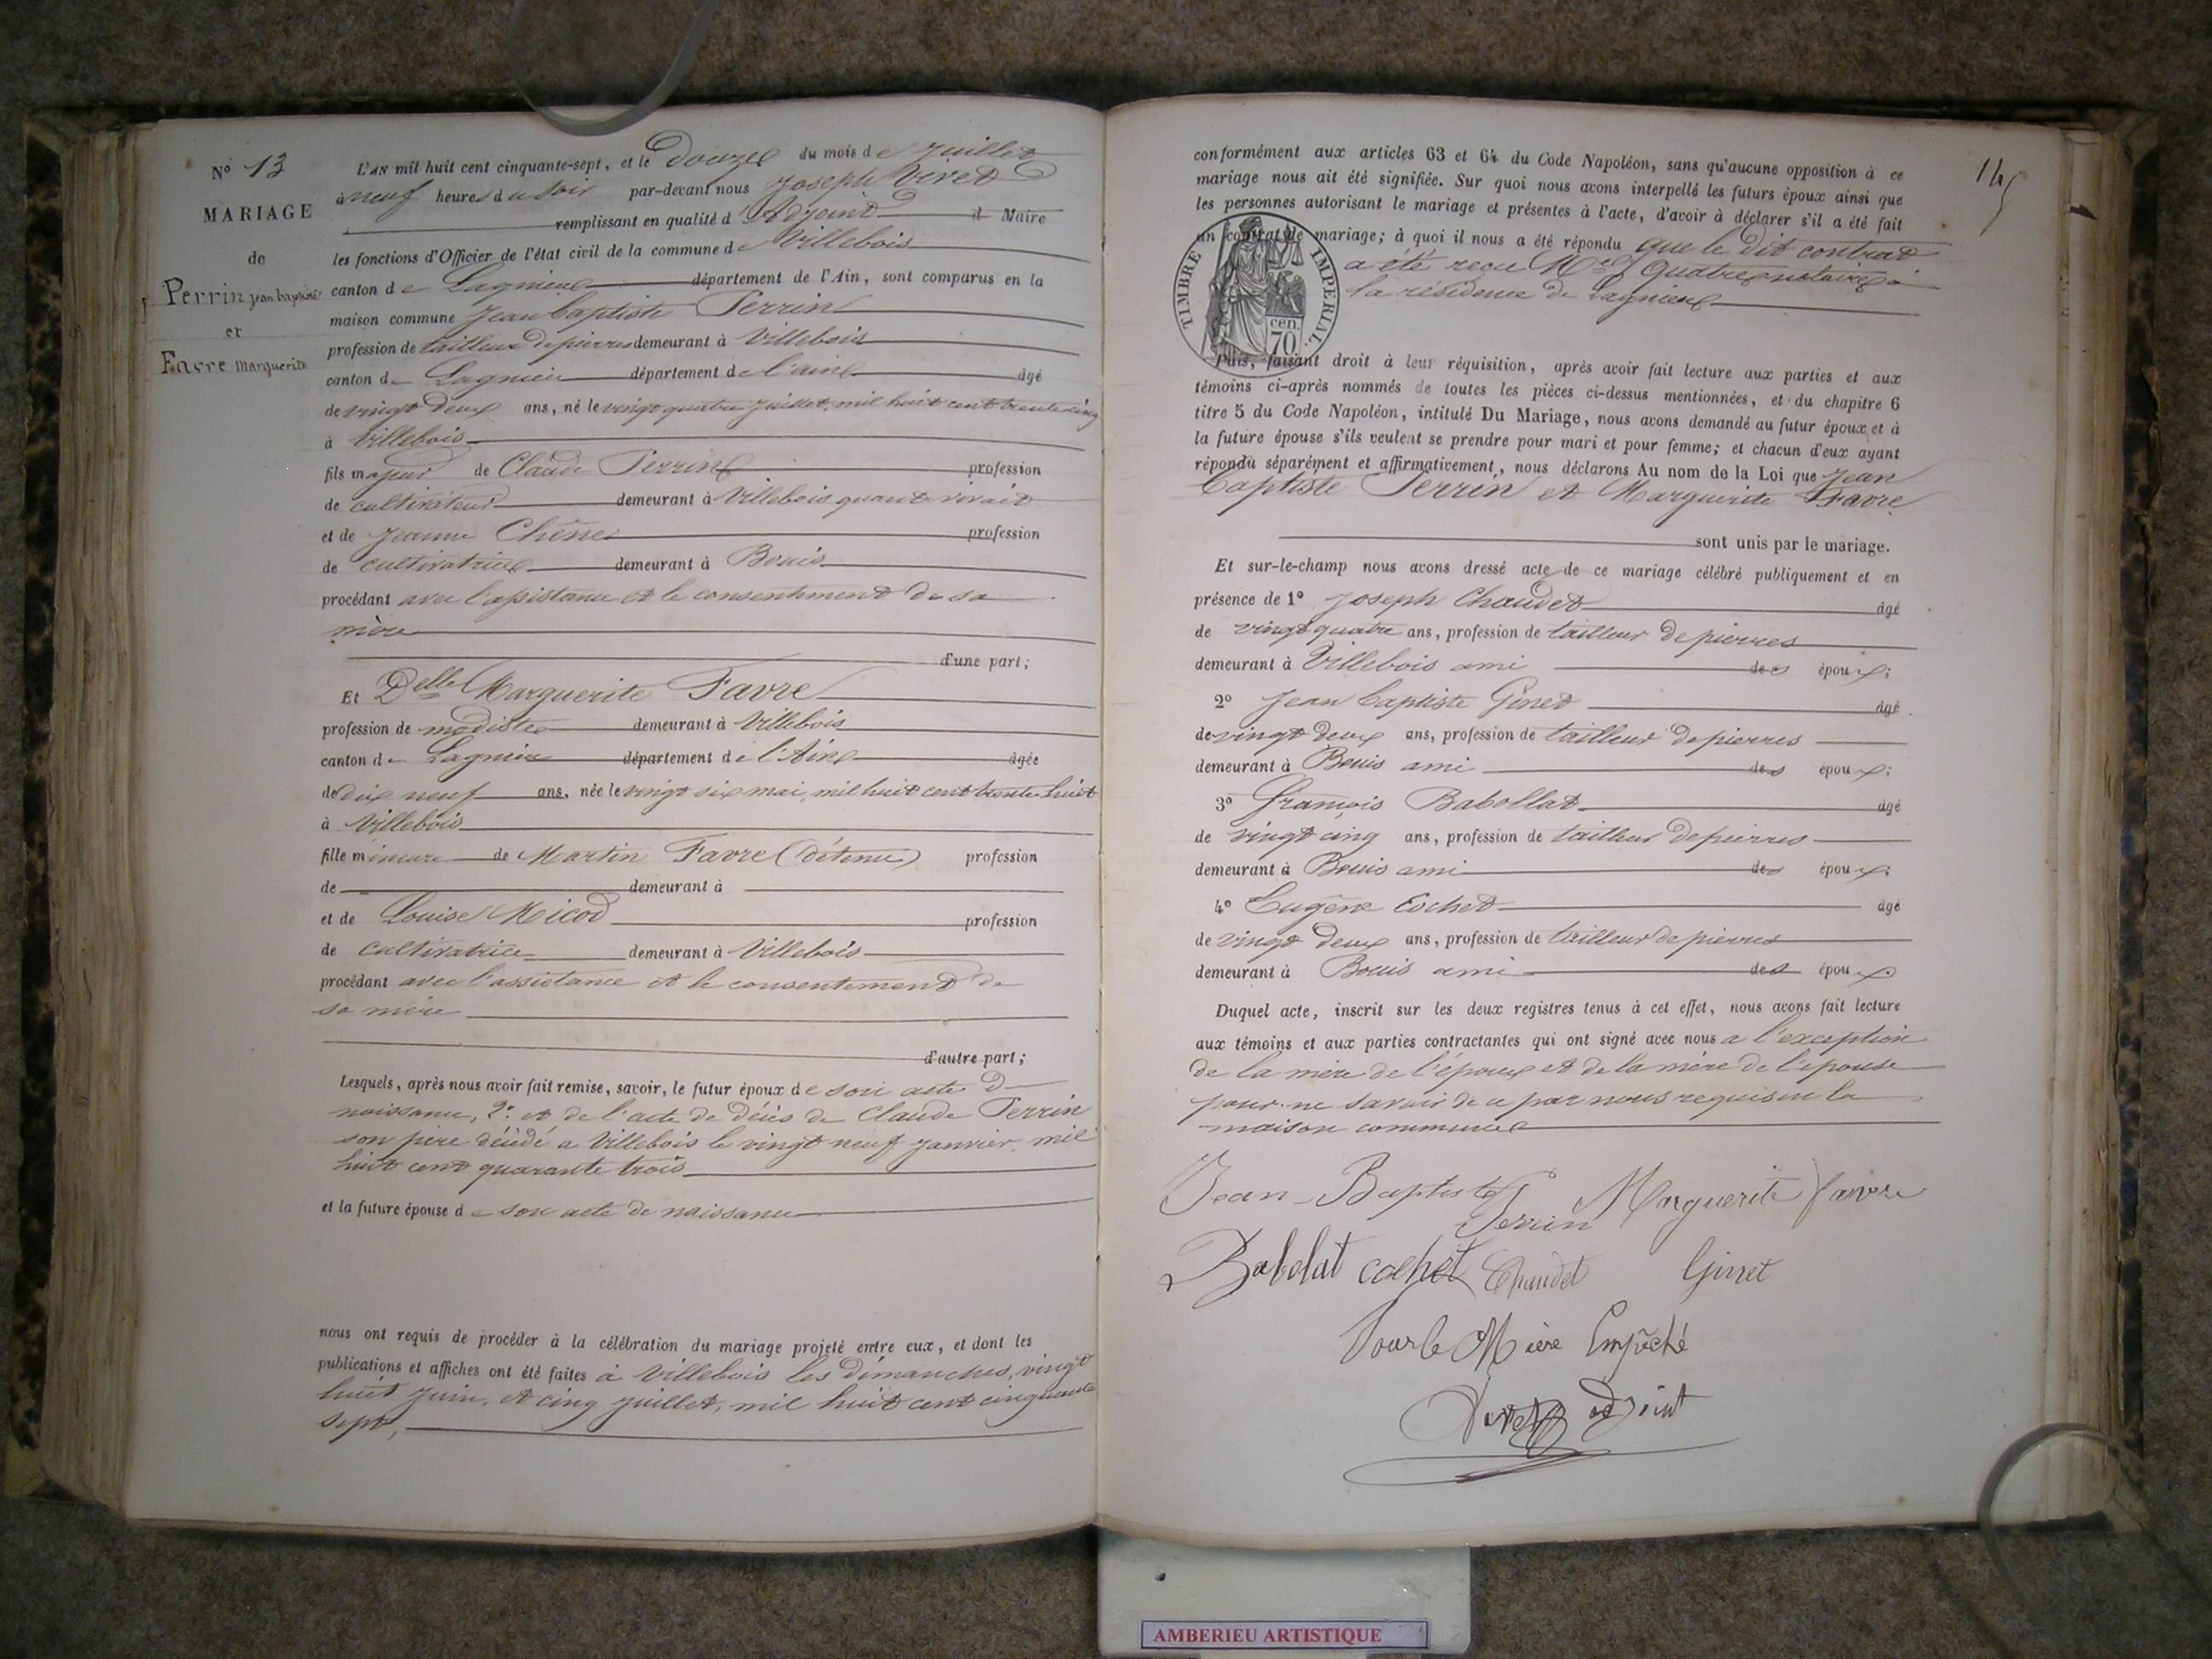 N° 13
MARIAGE
de
Perrin jean baptiste
et
Favre Marguerite
L'AN mil huit cent cinquante-sept, et le douze du mois de juillet
à neuf heures du soir par-devant nous Joseph Vivet
remplissant en qualité d'Adjoint d Maire
les fonctions d'Officier de l'état civil de la commune de Villebois
canton de Lagnieu département de l'Ain, sont comparus en la
maison commune Jean baptiste Perrin
profession de tailleur de pierres demeurant à Villebois
canton de Lagnieu département de l'ain âgé
de vingt deux ans, né le vingt quatre juillet, mil huit cent trente cinq
à Villebois
fils majeur de Claude Perrin profession
de cultivateur demeurant à Villebois quant vivait
et de jeanne Chêne profession
de cultivatrice demeurant à Bouis
procédant avec l'assistance et le consentement de sa
mère
d'une part;
Et Delle Marguerite Favre
profession de modiste demeurant à Villebois
canton de Lagnieu département de l'Ain âgée
de dix neuf ans, née le vingt six mai, mil huit cent trente huit
à Villebois
fille mineure de Martin Favre (détenu) profession
de demeurant à
et de Louise Micod profession
de cultivatrice demeurant à Villebois
procédant avec l'assistance et le consentement de
sa mère
d'autre part;
Lesquels, après nous avoir fait remise, savoir, le futur époux de son acte d
naissance, 2° et de l'acte de décès de Claude Perrin
son père décédé a Villebois le vingt neuf janvier, mil
huit cent quarante trois
et la future épouse de son acte de naissance
nous ont requis de procéder à la célébration du mariage projeté entre eux, et dont les
publications et affiches ont été faites à Villebois les dimanches, vingt
huit juin, et cinq juillet, mil huit cent cinquante
sept,
115
conformément aux articles 63 et 64 du Code Napoléon, sans qu'aucune opposition à ce
mariage nous ait été signifiée. Sur quoi nous avons interpellé les futurs époux ainsi que
les personnes autorisant le mariage et présentes à l'acte, d'avoir à déclarer s'il a été fait
un contrat de mariage; à quoi il nous a été répondu que le dit contrat
a été reçu Me Quatre notaire à
la résidence de Lagnieu
TIMBRE IMPERIAL.
cen.
70
Puis, faisant droit à leur réquisition, après avoir fait lecture aux parties et aux
témoins ci-après nommés de toutes les pièces ci-dessus mentionnées, et du chapitre 6
titre 5 du Code Napoléon, intitulé Du Mariage, nous avons demandé au futur époux et à
la future épouse s'ils veulent se prendre pour mari et pour femme; et chacun d'eux ayant
répondu séparément et affirmativement, nous déclarons Au nom de la Loi que Jean
baptiste Perrin et Marguerite Favre
sont unis par le mariage.
Et sur-le-champ nous avons dressé acte de ce mariage célébré publiquement et en
présence de 1° Joseph Chaudet âgé
de vingt quatre ans, profession de tailleur de pierres
demeurant à Villebois ami des époux;
2° Jean baptiste Ginet âgé
de vingt deux ans, profession de tailleur de pierres
demeurant à Bouis ami des époux;
3° François Babollat âgé
de vingt cinq ans, profession de tailleur de pierres
demeurant à Bouis ami des époux;
4° Eugène Cochet âgé
de vingt deux ans, profession de tailleur de pierres
demeurant à Bouis ami des époux
Duquel acte, inscrit sur les deux registres tenus à cet effet, nous avons fait lecture
aux témoins et aux parties contractantes qui ont signé avec nous a l'exception
de la mère de l'époux et de la mère de l'épouse
pour ne savoir de ce par nous requis en la
maison commune
Jean-Baptiste Perrin Marguerite favre
Babolat cochet Chaudet Ginet
Pour le Mière Empêché
Vivet adjoint
AMBERIEU ARTISTIQUE